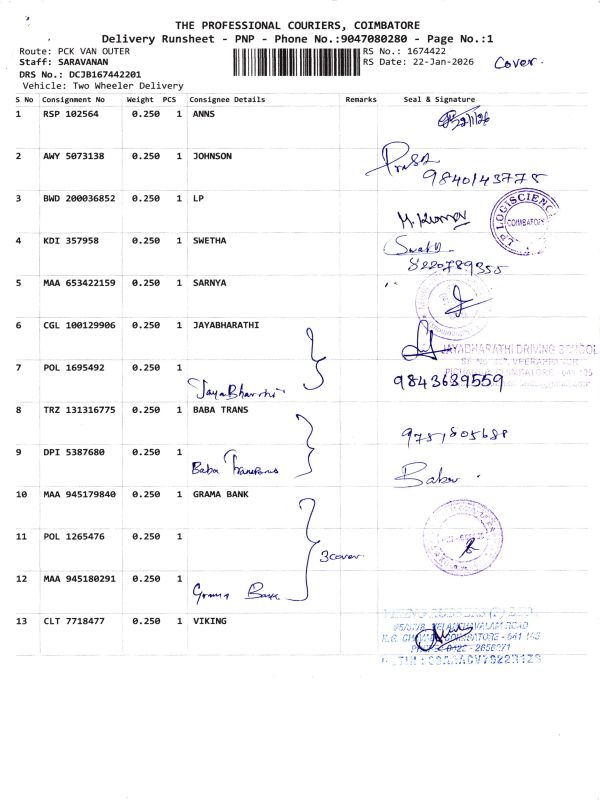 THE PROFESSIONAL COURIERS, COIMBATORE
Delivery Runsheet - PNP - Phone No.:9047080280 - Page No.:1
Route: PCK VAN OUTER
RS No.: 1674422
Staff: SARAVANAN
RS Date: 22-Jan-2026
Cover.
DRS No.: DCJB167442201
Vehicle: Two Wheeler Delivery
S No Consignment No Weight PCS Consignee Details Remarks Seal & Signature
1 RSP 102564 0.250 1 ANNS
22/1/26
2 AWY 5073138 0.250 1 JOHNSON
9840143778
3 BWD 200036852 0.250 1 LP
M. Kumar
LP LOGISCIENCE
COIMBATORE
4 KDI 357958 0.250 1 SWETHA
Swathi
8220789355
5 MAA 653422159 0.250 1 SARNYA
6 CGL 100129906 0.250 1 JAYABHARATHI
JAYABHARATHI DRIVING SCHOOL
7 POL 1695492 0.250 1
JayaBharathi
9843639559
8 TRZ 131316775 0.250 1 BABA TRANS
9751805688
9 DPI 5387680 0.250 1
Baba Transports
Babu
10 MAA 945179840 0.250 1 GRAMA BANK
11 POL 1265476 0.250 1
3 cover
12 MAA 945180291 0.250 1
Grama Bank
13 CLT 7718477 0.250 1 VIKING
COIMBATORE - 641